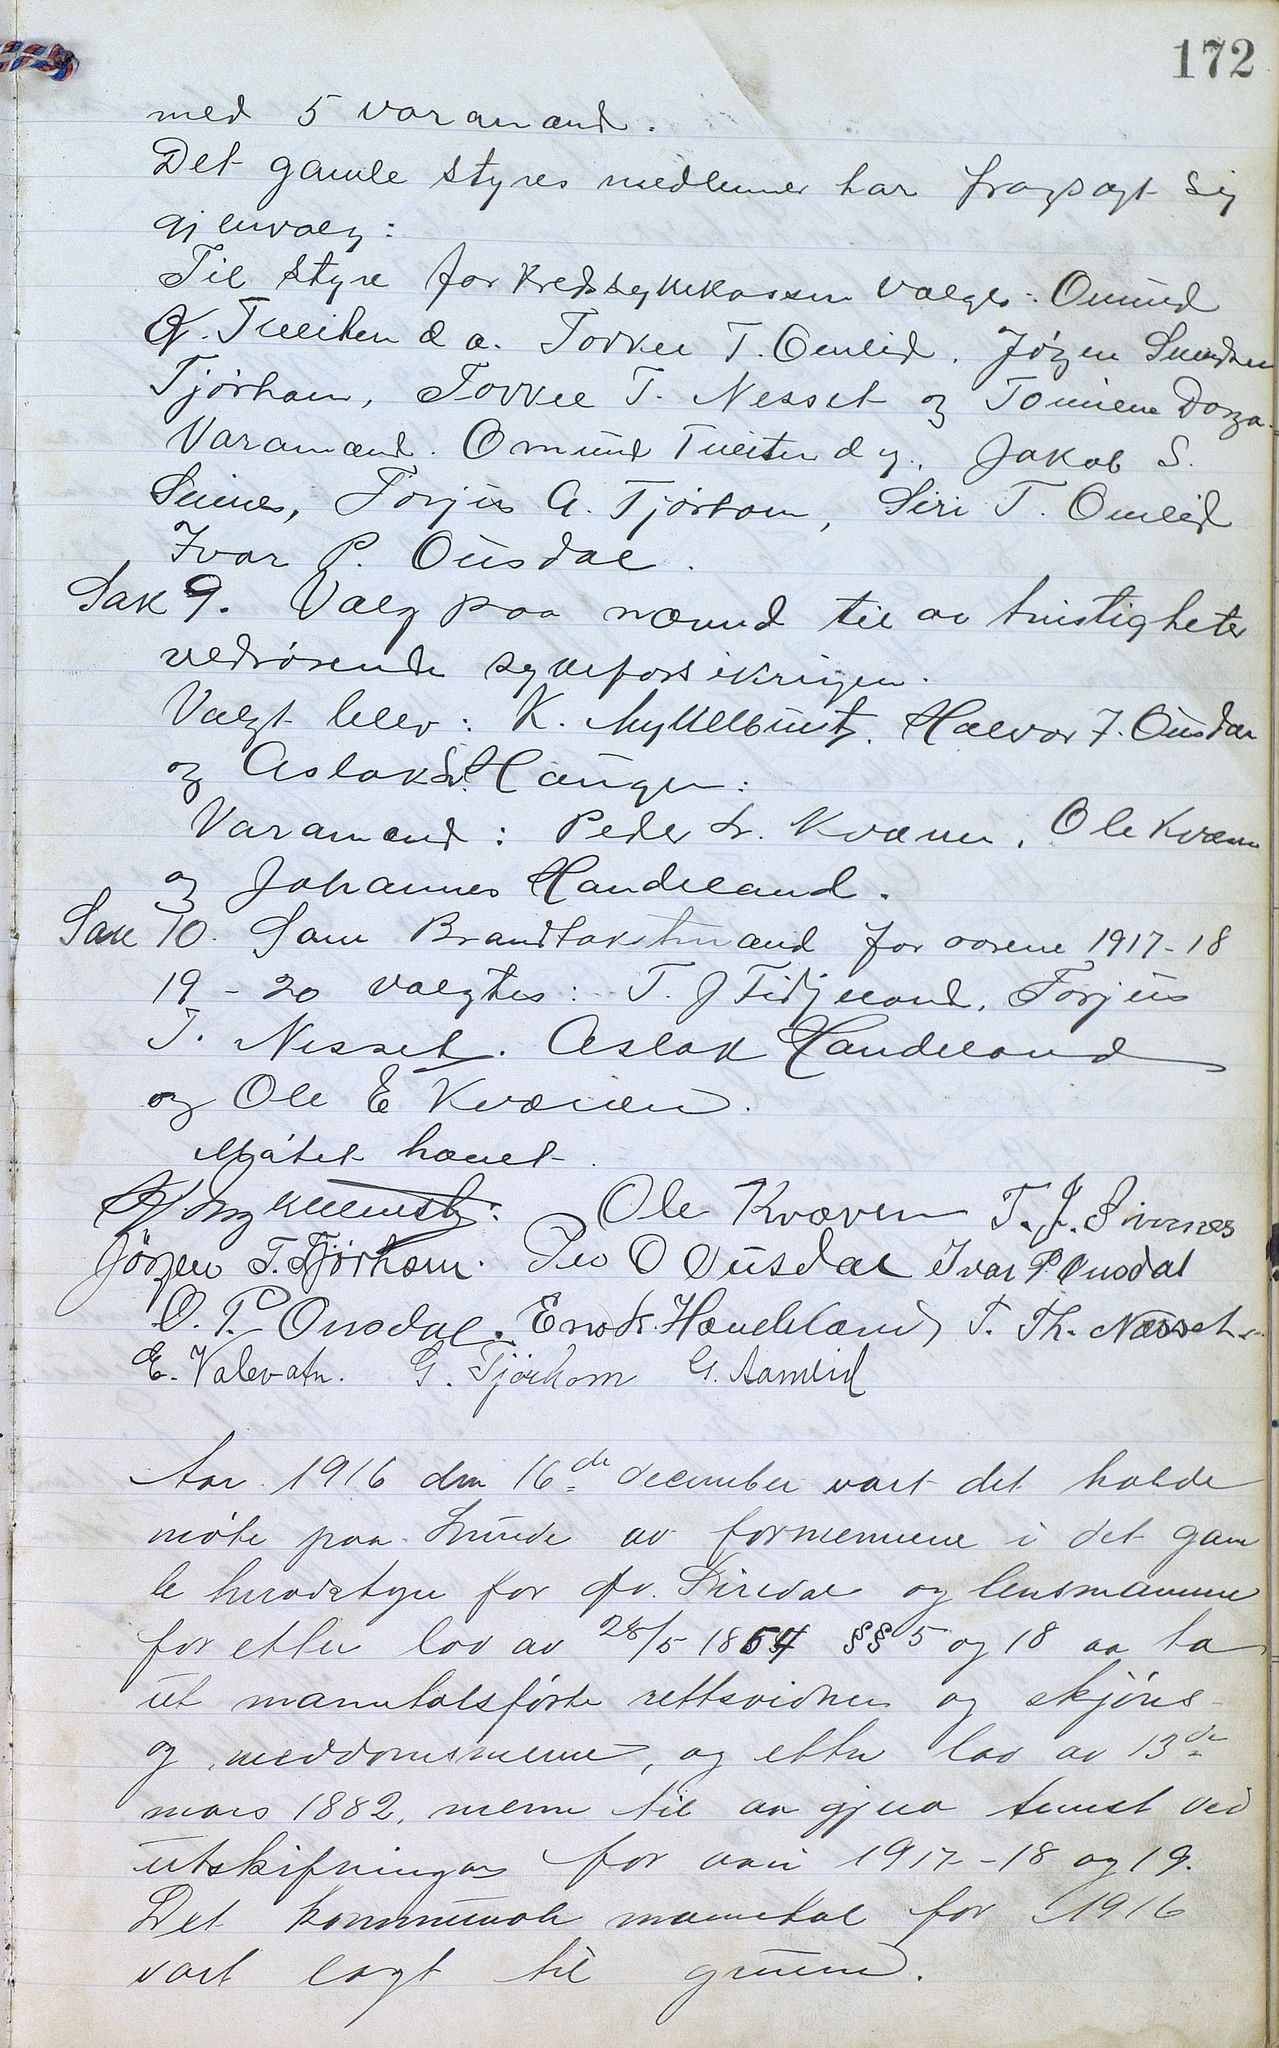 172
med 5 varamænd.
Det gamle styres medlemmer har fragsagt sig
gjenvalg:
Til styre for kredssykekassen valges: Omund
K. Tveiten d æ. Torkel T. Omlid, Jørgen Svendsen
Tjørhom, Torkel T. Nesset og Tomine Dorga.
Varamænd. Omund Tveiten d y. Jakob S.
Sinnes, Torjus A. Tjørhom, Siri T. Omlid
Ivar P. Ousdal.
Sak 9. Valg paa nævnd til av tvistigheter
vedrørende sykeforsikringen.
Valgt blev: K. Huklbust, Halvor I. Ousdal
og Aslak S. Haugen:
Varamænd: Peder S. Kvæven, Ole Kvæven
og Johannes Handeland.
Sak 10. Som Brandtakstmænd for aarene 1917-18
19-20 valgtes: T. J Fidjeland, Torjus
T. Nesset. Aslak Handeland
og Ole E Kvæven.
Møtet hævet.
Ole Kvæven T. J. Sinnes
Jörgen T. Tjørhom. Per O Ousdal Ivar P. Ousdal
O. P. Ousdal. Handeland T. Th. Næsset.
E. Valevatn. G. Tjörhom G. Aamlid
Aar 1916 den 16de december vart det halde
møte paa Lunde av formennene i det gam
le heradstyre for øv. Sirdal og lensmannen
for etter lov av 28/5 1854 §§ 5 og 18 aa ta
ut manntalsførte rettsvidner og skjøns-
og meddomsmenn, og etter lov av 13de
mars 1882, menn til aa gjera tenest ved
utskiftningar for aari 1917-18 og 19.
Det kommunale manntal for 1916
vart lagt til grunn.